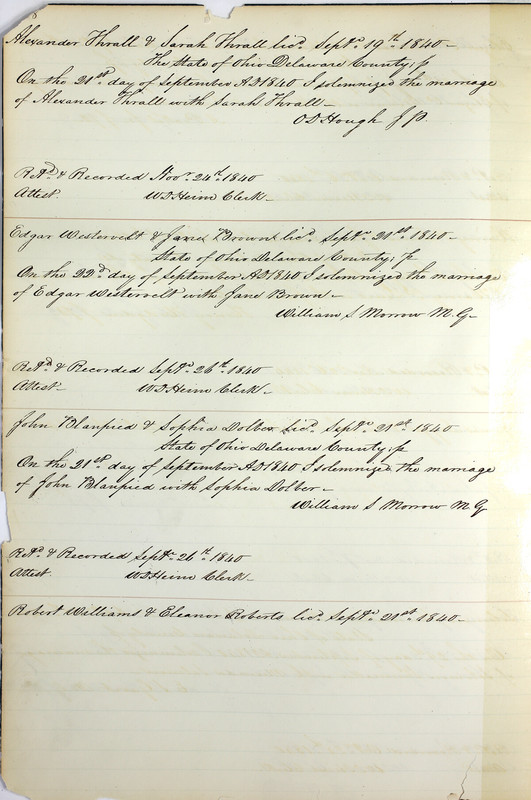 Alexander Thrall & Sarah Thrall licd. Septr. 19th. 1840—
The State of Ohio Delaware County; ss
On the 21st. day of September AD 1840 I solemnized the marriage
of Alexander Thrall with Sarah Thrall—
O D Hough J P.
Retd. & Recorded Novr. 24th. 1840
Attest. W D Heim Clerk—
Edgar Westervelt & Jane Brown licd. Septr. 21st. 1840—
State of Ohio Delaware County; ss
On the 22d. day of September AD 1840 I solemnized the marriage
of Edgar Westervelt with Jane Brown—
William S Morrow M. G—
Retd. & Recorded Septr. 26th. 1840
Attest— W D Heim Clerk—
John Blanpied & Sophia Dolber licd. Septr. 21st. 1840
State of Ohio Delaware County; ss
On the 21st. day of September AD 1840 I solemnized the marriage
of John Blanpied with Sophia Dolber—
William S Morrow M G
Retd. & Recorded Septr. 26th. 1840
Attest. W D Heim Clerk—
Robert Williams & Eleanor Roberts licd. Septr. 21st. 1840—